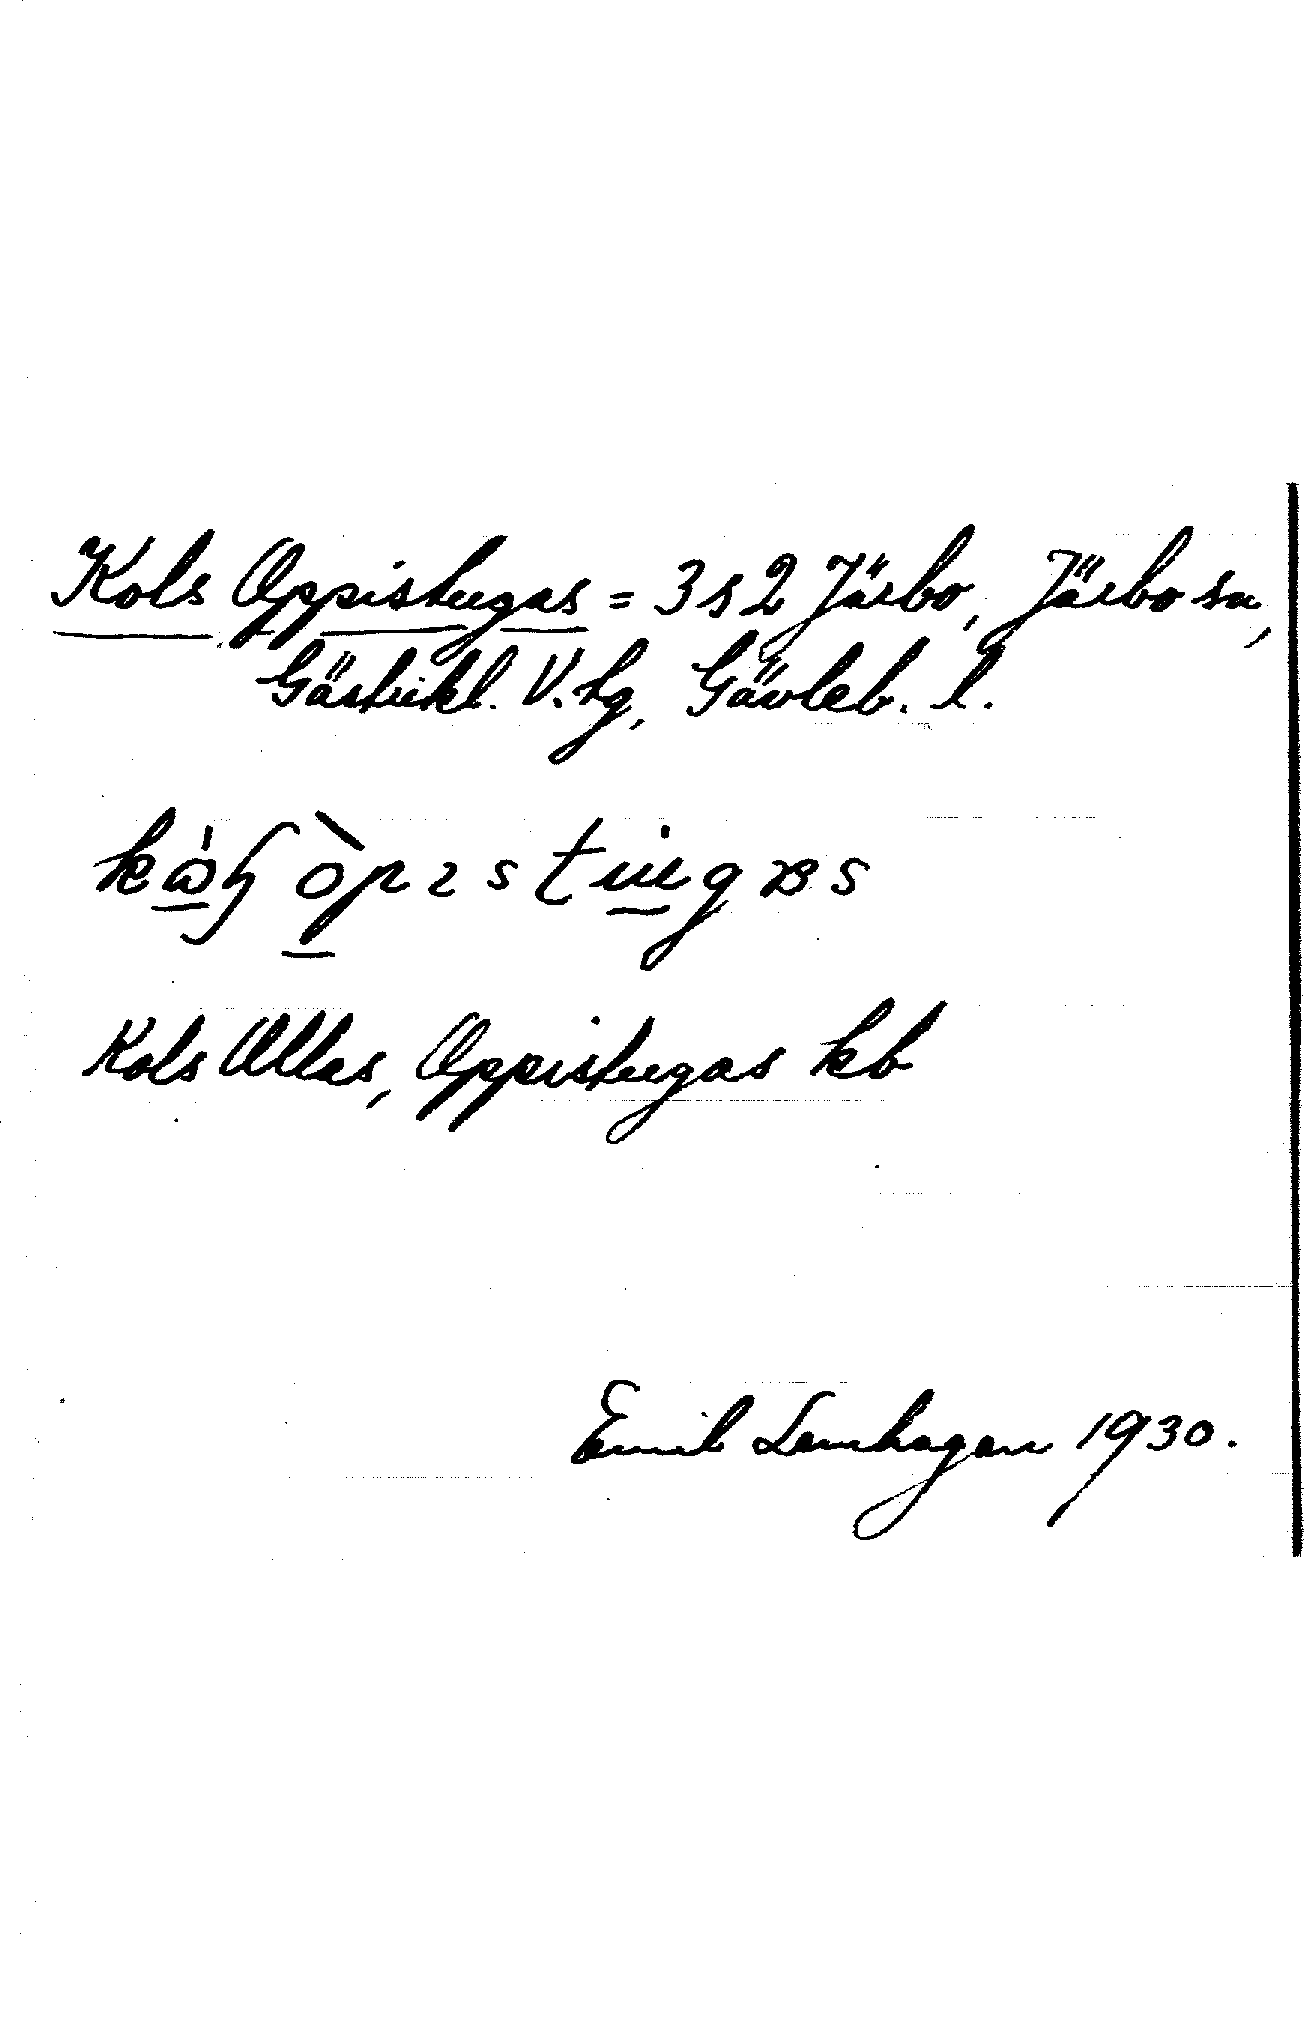 Kols Oppistugas = 3 s 2 Järbo, Järbo sn,
Gästrikl. V. tg, Gävleb. l.
Kols Ollas, Oppistugas kb
Emil Lamhagen 1930.